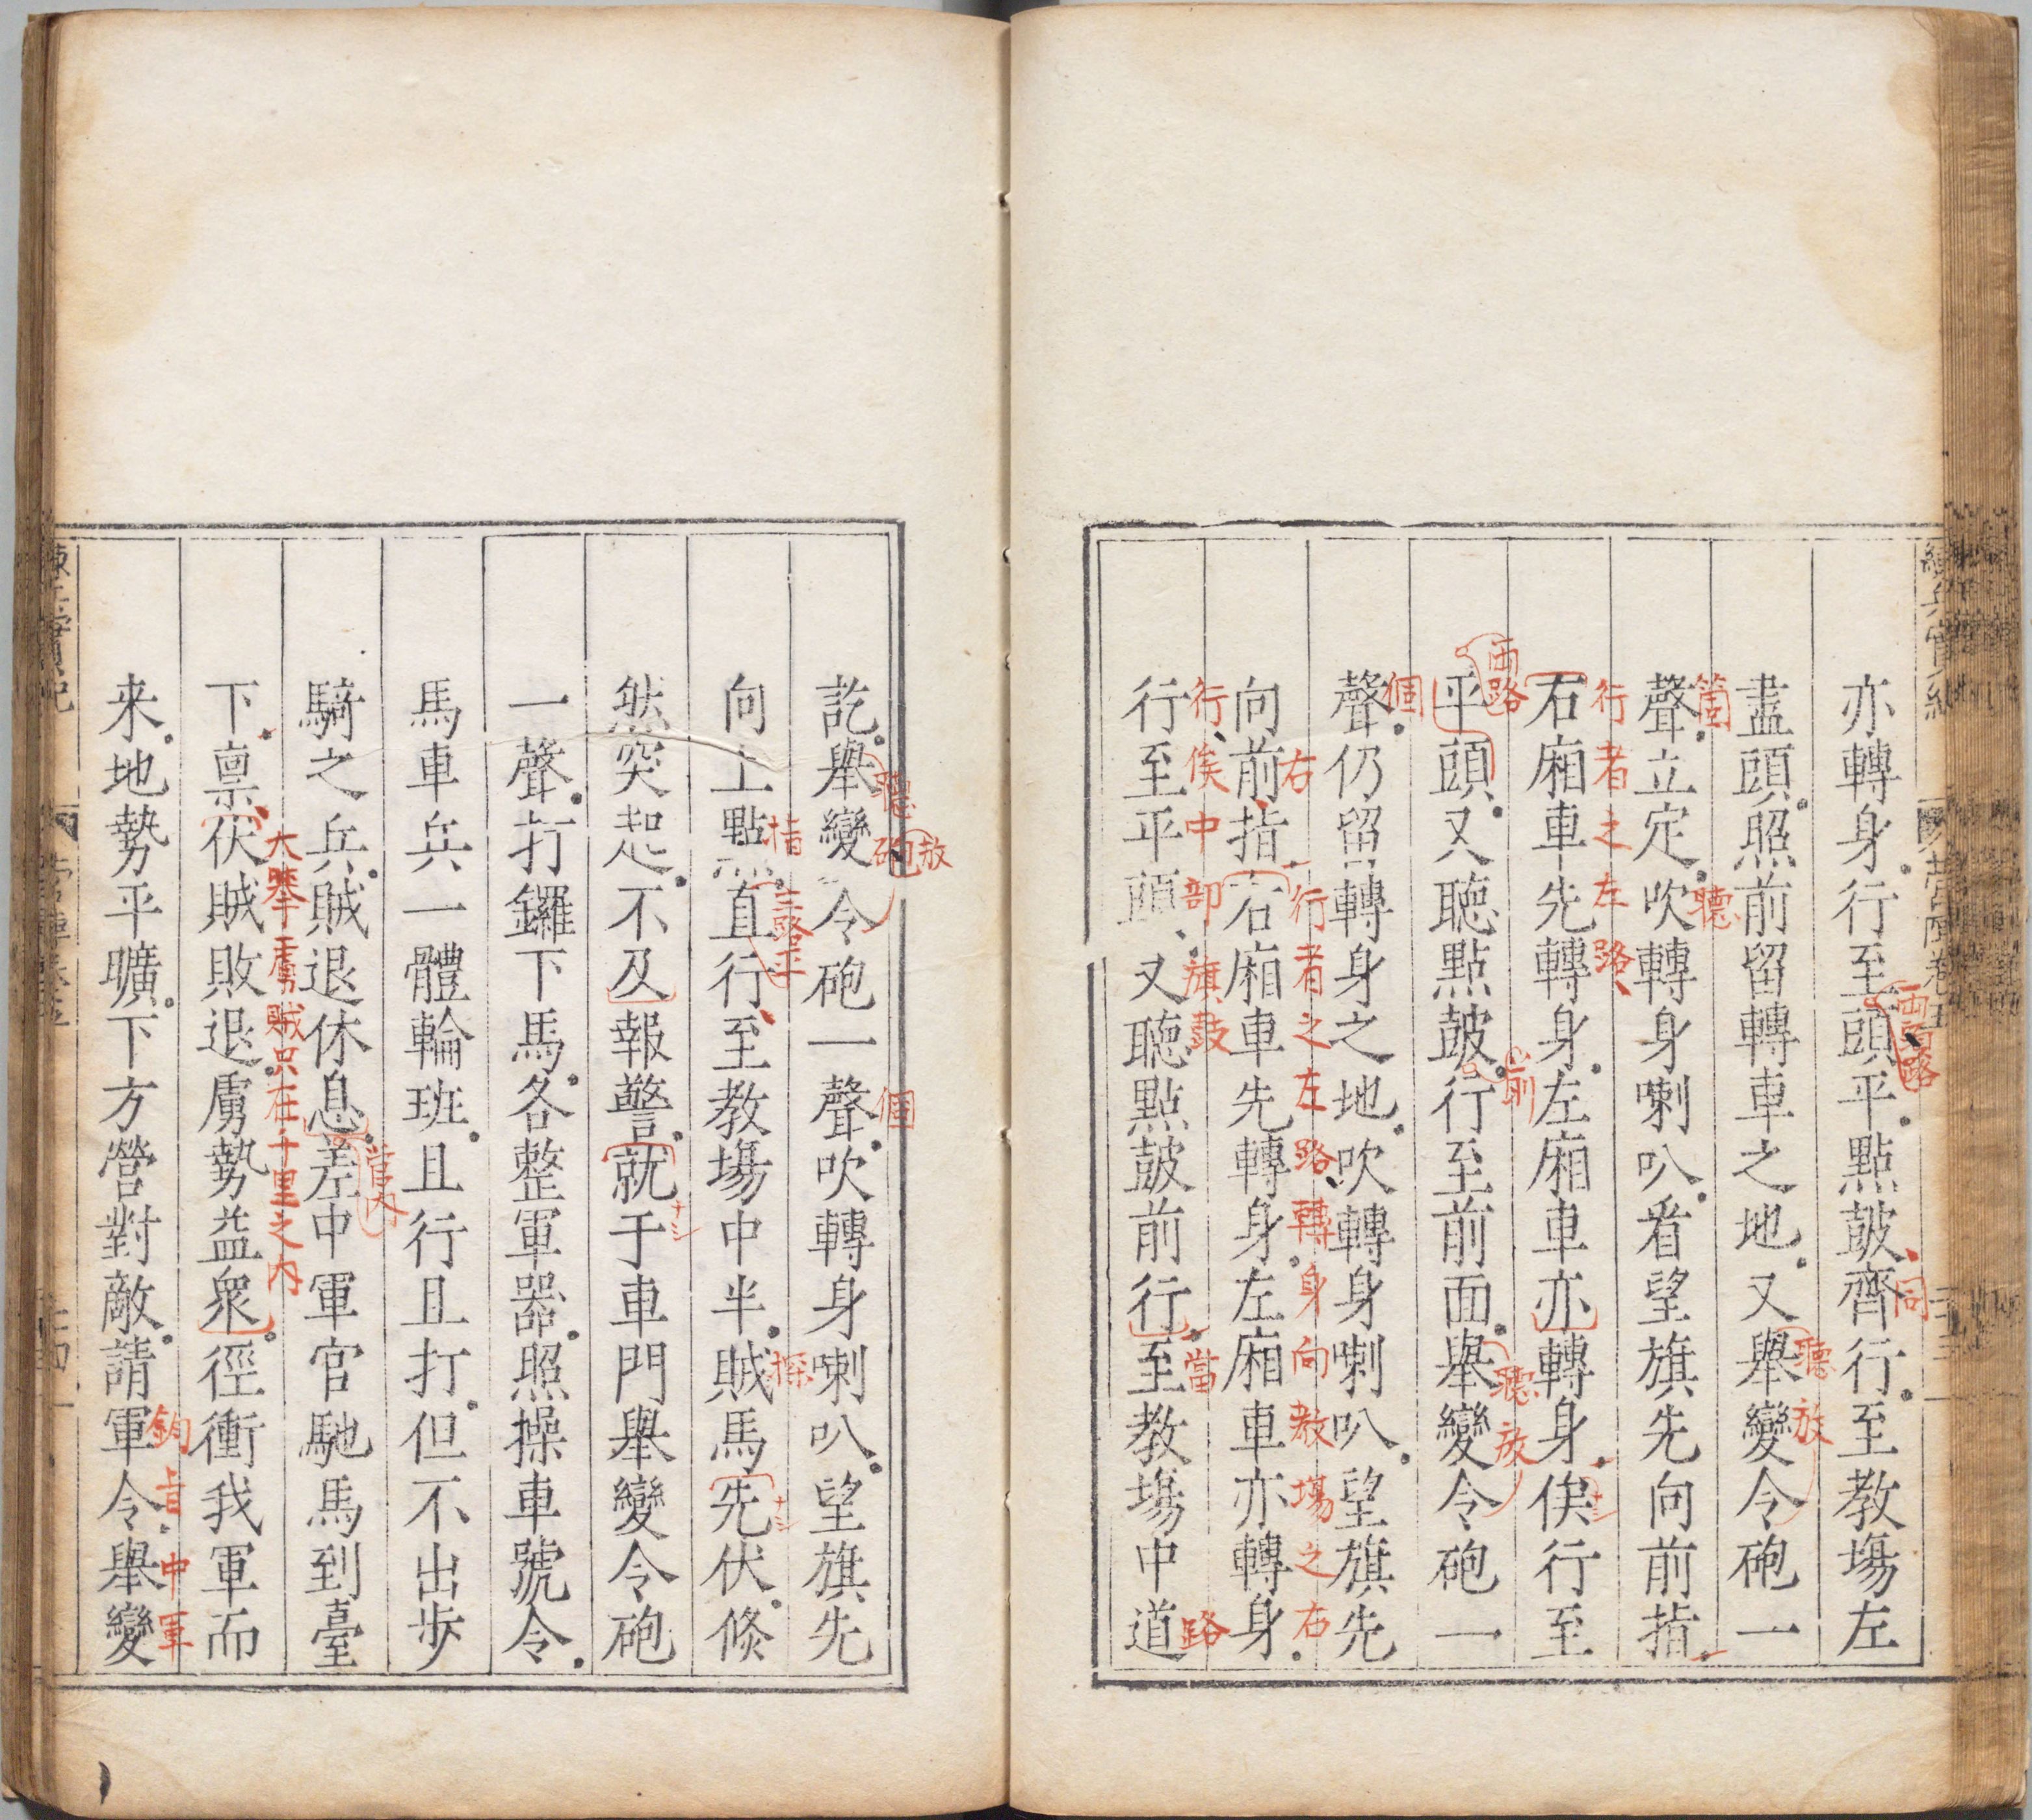 亦轉身。行至頭平。點鼓齊行。至教塲左
兩路
同
盡頭。照前留轉車之地。又舉變令砲一
聽放
聲。立定。吹轉身喇叭。看望旗先向前指。
箇
聽
右廂車先轉身。左廂車亦轉身。俟行至
行者之左路
平頭。又聽點鼓。行至前面。舉變令砲一
兩路
前
聽放
聲。仍留轉身之地。吹轉身喇叭。望旗先
個
向前指。右廂車先轉身。左廂車亦轉身。
右
行者之左路轉身向教塲之右
行至平頭。又聽點鼓前行。至教塲中道
行俟中部旗鼓
當
路
訖。舉變令砲一聲。吹轉身喇叭。望旗先
聽
砲
放
個
向上點。直行至教塲中半。賊馬先伏。倐
指
三路平
探
然突起。不及報警。就于車門舉變令砲
一聲。打鑼下馬。各整軍器。照操車號令。
馬車兵一體輪班。且行且打。但不出步
騎之兵。賊退休息。差中軍官馳馬到臺
營內
下稟。伏賊敗退。虜勢益衆。徑衝我軍而
大舉虜賊只在十里之內
来。地勢平曠。下方營對敵。請軍令舉變
鈞旨
中軍